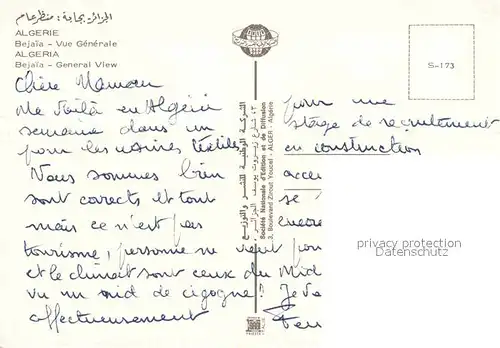 الجزائر بجاية : منظر عام
ALGERIE
Bejaïa - Vue Générale
ALGERIA
Bejaïa - General View
S-173
Chère Maman
Me voilà en Algérie
semaine dans un
pour les usines textiles
Nous sommes bien
sont corrects et tout
mais ce n'est pas
tourisme, personne ne vient
et le climat sont ceux du Midi
vu un nid de cigogne!
affectueusement
pour une
stage de recrutement
en construction
se
الشركة الوطنية للنشر والتوزيع
٣، شارع زيروت يوسف الجزائر
Société Nationale d'Edition et de Diffusion
3, Boulevard Zirout Youcef - ALGER - Algérie
privacy protection
Datenschutz